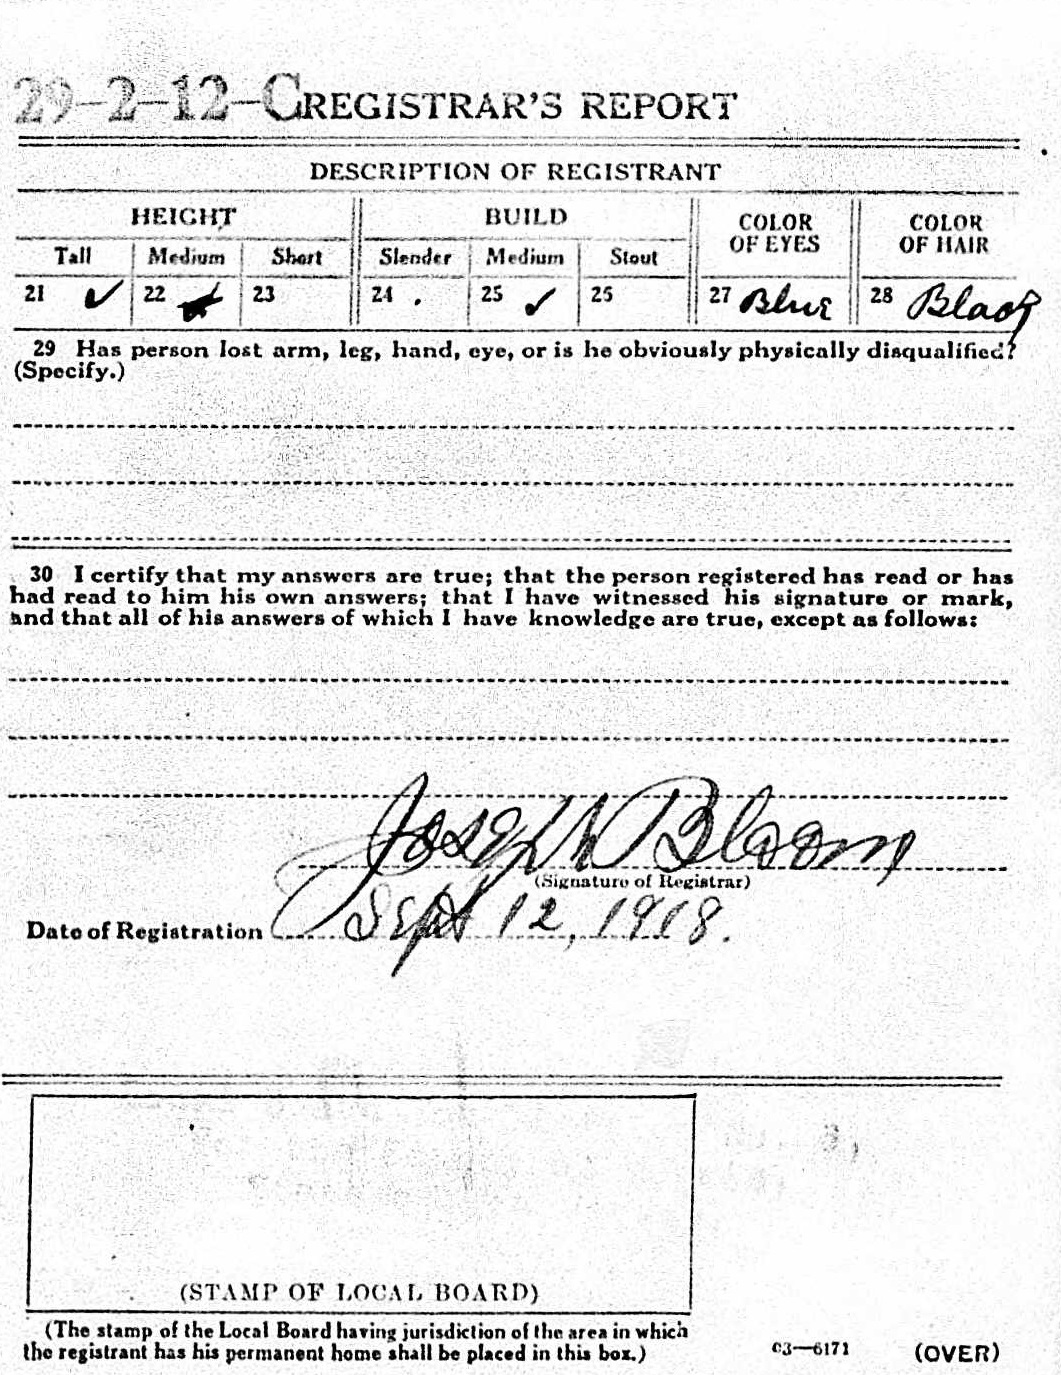 29-2-12-C REGISTRAR'S REPORT
DESCRIPTION OF REGISTRANT
HEIGHT BUILD COLOR OF EYES COLOR OF HAIR
Tall Medium Short Slender Medium Stout
21 ✓ 22 23 24 . 25 ✓ 25 27 Blue 28 Black
29 Has person lost arm, leg, hand, eye, or is he obviously physically disqualified?
(Specify.)
30 I certify that my answers are true; that the person registered has read or has
had read to him his own answers; that I have witnessed his signature or mark,
and that all of his answers of which I have knowledge are true, except as follows:
Joseph Bloom
(Signature of Registrar)
Date of Registration Sept 12, 1918.
(STAMP OF LOCAL BOARD)
(The stamp of the Local Board having jurisdiction of the area in which
the registrant has his permanent home shall be placed in this box.)
03—6171 (OVER)